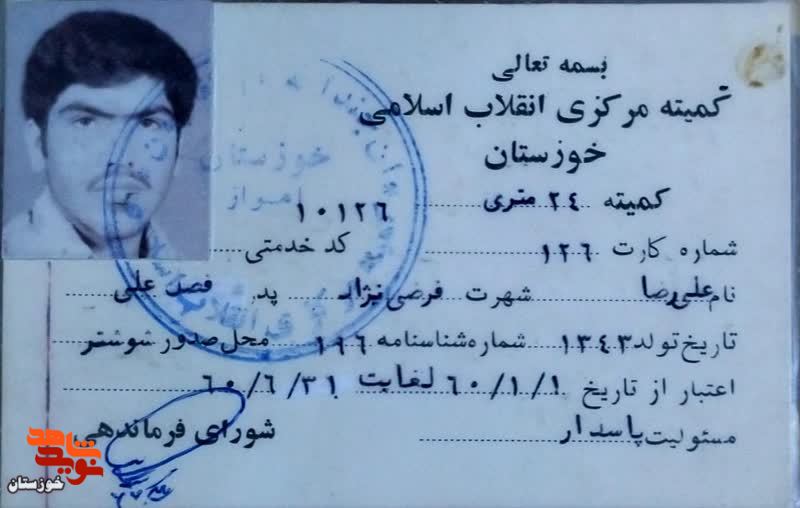 بسمه تعالی
کمیته مرکزی انقلاب اسلامی
خوزستان
کمیته ۲۴ متری
شماره کارت ۱۲۶ کد خدمتی ۱۰۱۲۶
نام علیرضا شهرت فرضی نژاد پد فضل علی
تاریخ تولد ۱۳۴۳ شماره شناسنامه ۱۹۶ محل صدور شوشتر
اعتبار از تاریخ ۶۰/۱/۱ لغایت ۶۰/۶/۳۱
مسئولیت پاسدار
شورای فرماندهی
خوزستان
اهواز
نوید شاهد
خوزستان